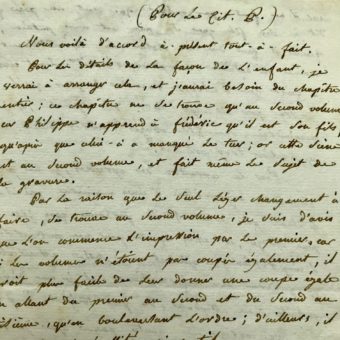 (Pour Le Cit. P.)
Nous voilà d'accord à présent tout-à-fait.
Pour les détails de la façon de L'enfant, je
verrai à arranger cela, et j'aurai besoin du chapitre
entier; ce chapitre ne se trouve qu'au second volume,
car Philippe n'apprend à frédéric qu'il est son fils,
qu'après que celui-ci a manqué le tuer; or cette scène
est au second volume, et fait même le sujet de
la gravure.
Par la raison que le seul léger changement à
faire, se trouve au second volume, je suis d'avis
que l'on commence L'impression par le premier, car
si les volumes n'étoient par coupés également, il
seroit plus facile de leur donner une coupe égale
en allant du premier au second et du second au
troisième, qu'en bouleversant L'ordre; d'ailleurs, il